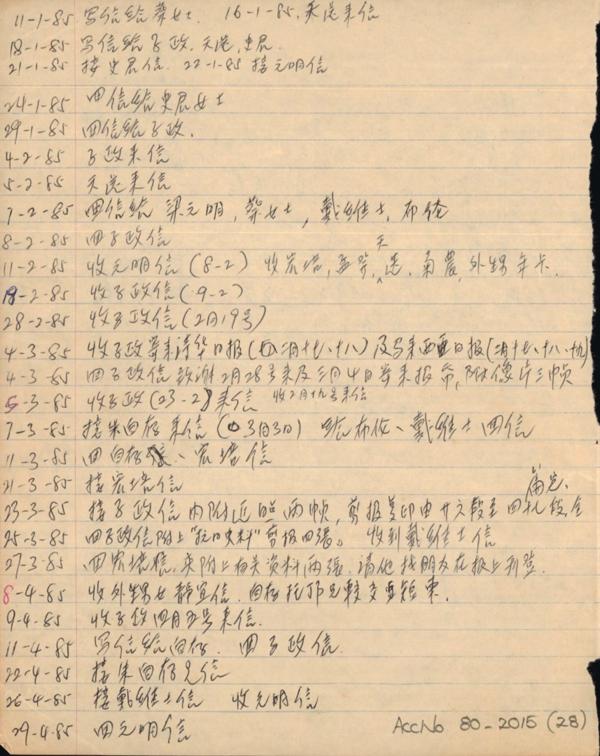 11-1-85 写信给蔡女士. 16-1-85, 天送来信
18-1-85 写信给子政. 天送, 史君.
21-1-85 接史君信. 22-1-85 接元明信
24-1-85 回信给史君女士
29-1-85 回信给子政.
4-2-85 子政来信
5-2-85 天送来信
7-2-85 回信给 梁元明, 蔡女士, 戴维士, 布伦
8-2-85 回子政信
11-2-85 收元明信 (8-2) 收宏培, 天送, 菊農, 外甥年卡.
19-2-85 收子政信 (9-2)
28-2-85 收子政信 (2月19号)
4-3-85 收子政寄来清华日报 (二月十七、十八) 及马来西亚日报 (二月十七、十八、十九)
4-3-85 回子政信 致谢2月28号来及三月4日寄来报章, 附像片三帧
5-3-85 收子政 (23-2) 来信 收2月十九号来信
7-3-85 接朱自存来信 (3月3日) 给布伦、戴维士回信
11-3-85 回自存、宏培信
21-3-85 接宏培信
23-3-85 接子政信 内附近照两帧, 剪报复印由廿六段至回礼段全篇完.
25-3-85 回子政信附上"抗日史料"剪报四張。 收到戴维士信
27-3-85 回宏培信, 附上相关资料两張, 请他找朋友在报上刊登.
8-4-85 收外甥女静宜信.
9-4-85 收子政四月五号来信.
11-4-85 写信给自存. 回子政信.
22-4-85 接朱自存兄信
26-4-85 接戴维士信 收元明信
29-4-85 回元明信
AccNo 80-2015 (28)